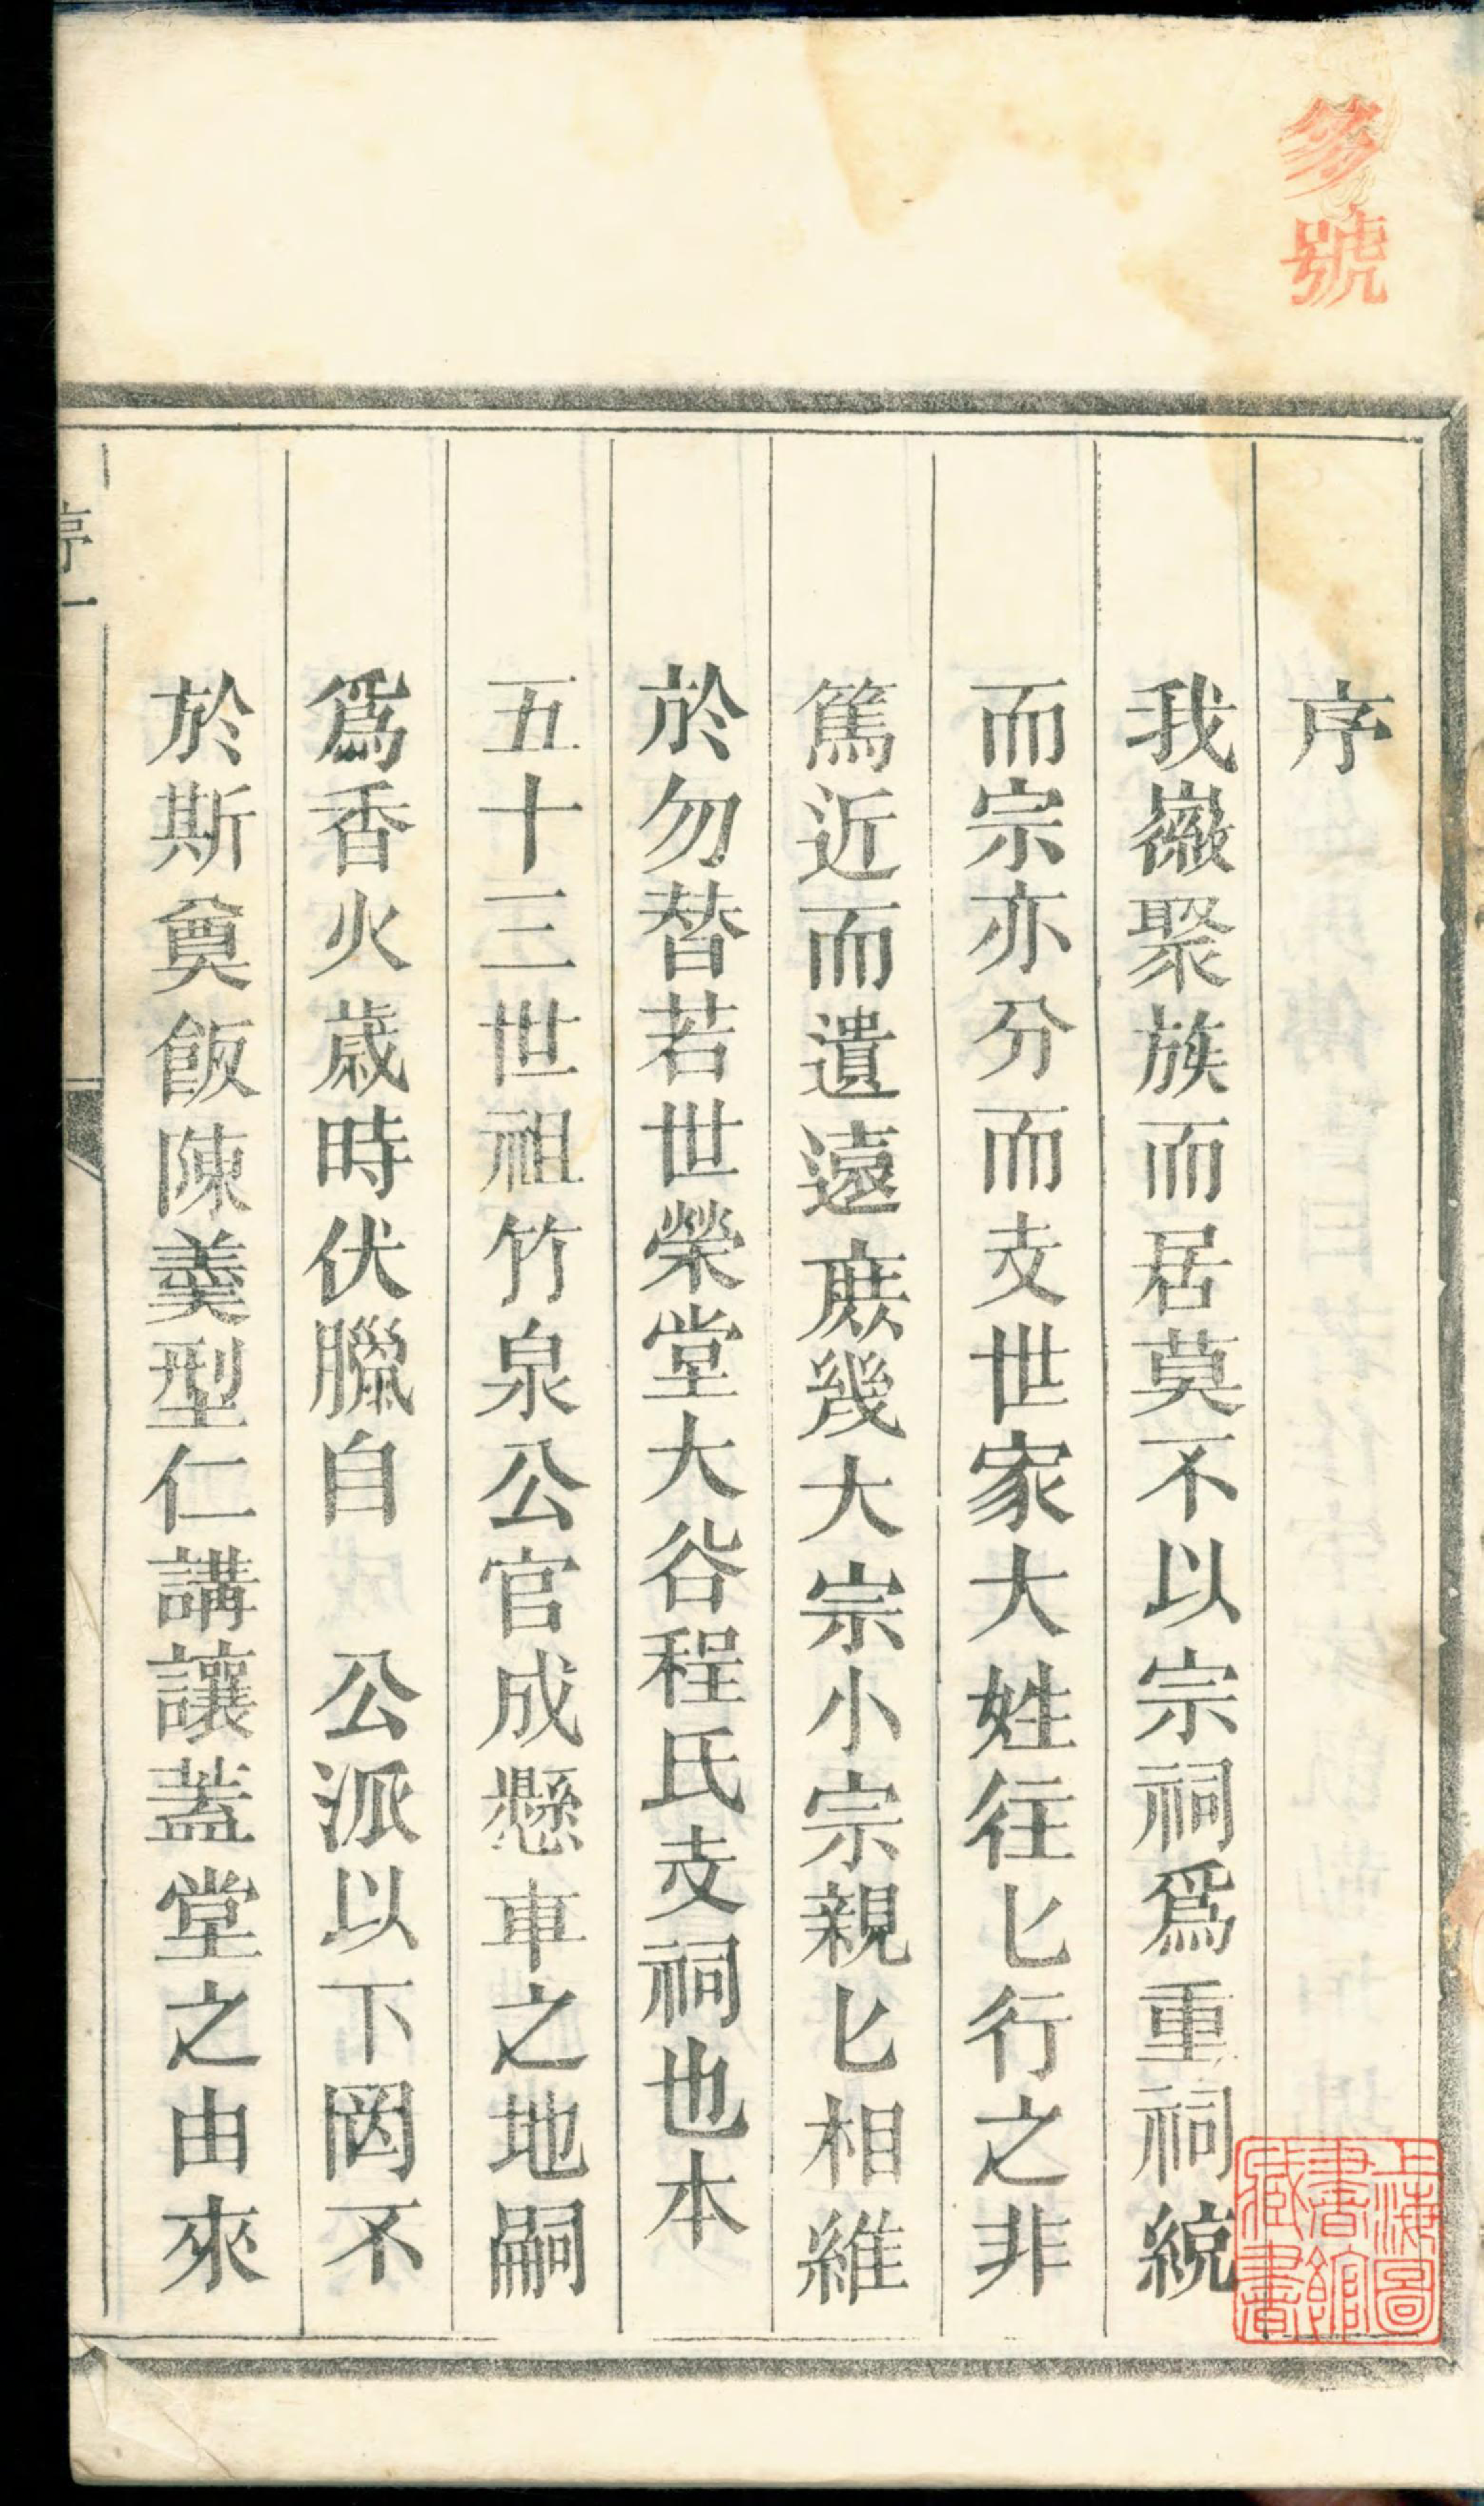 號
序
我徽聚族而居莫不以宗祠爲重祠統
而宗亦分而支世家大姓往匕行之非
篤近而遺遠庻幾大宗小宗親匕相維
於勿替若世榮堂大谷程氏支祠也本
五十三世祖竹泉公官成懸車之地嗣
爲香火歲時伏臘自　公派以下罔不
於斯奠飯陳羹型仁講讓蓋堂之由來
序一
上海圖書館藏書